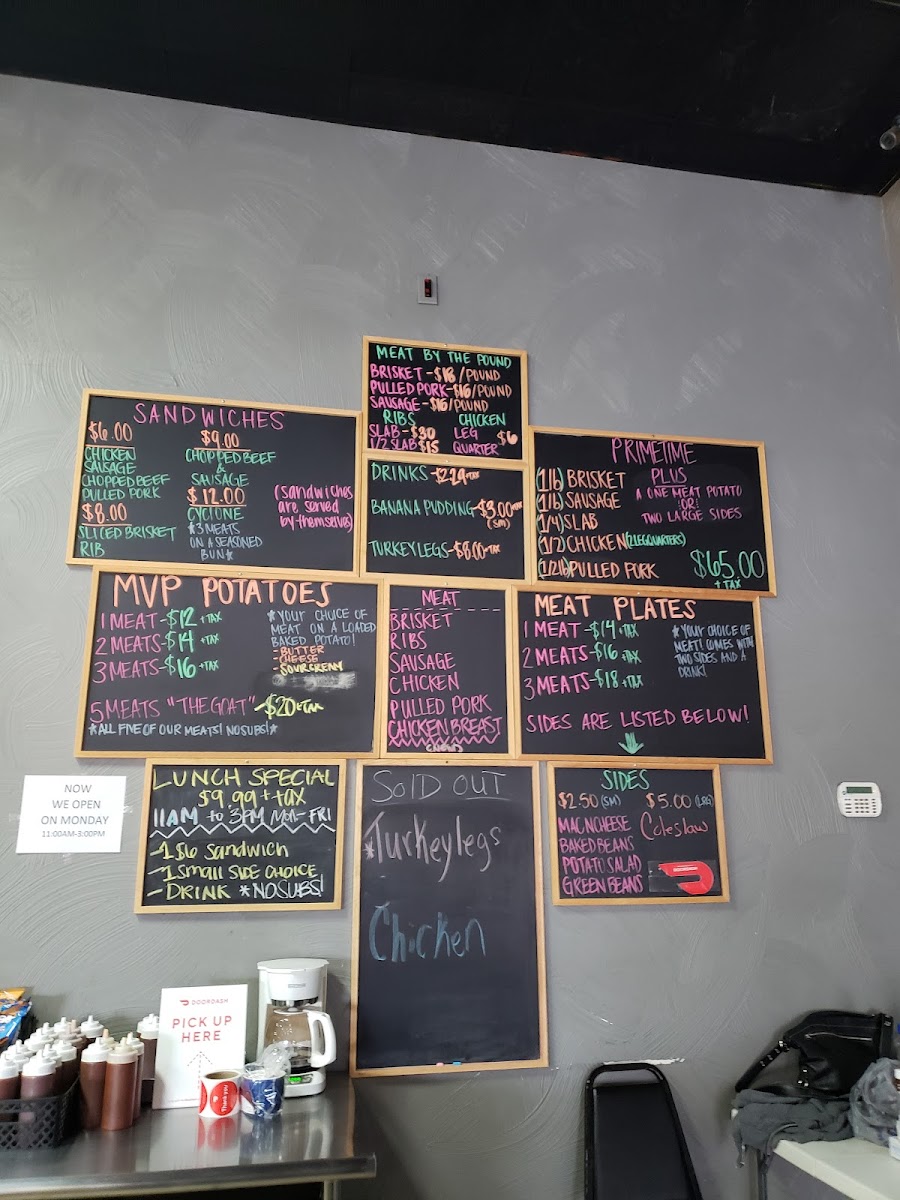 MEAT BY THE POUND
BRISKET-$18/POUND
PULLED PORK-$16/POUND
SAUSAGE-$16/POUND
RIBS
SLAB-$30
1/2 SLAB $15
CHICKEN
LEG
QUARTER
$6
SANDWICHES
$6.00
CHICKEN
SAUSAGE
CHOPPED BEEF
PULLED PORK
$8.00
SLICED BRISKET
RIB
$9.00
CHOPPED BEEF
&
SAUSAGE
$12.00
CYCLONE
*3 MEATS
ON A SEASONED
BUN*
(Sandwiches
are served
by themselves)
DRINKS-$2.29+TAX
BANANA PUDDING-$3.00+TAX
(SM)
TURKEY LEGS-
PRIMETIME
(1lb) BRISKET
(1lb) SAUSAGE
(1/4) SLAB
(1/2) CHICKEN (2 LEG QUARTERS)
(1/2lb) PULLED PORK
PLUS
A ONE MEAT POTATO
OR:
TWO LARGE SIDES
$65.00
+TAX
MVP POTATOES
1 MEAT-$12+TAX
2 MEATS-$14+TAX
3 MEATS-$16+TAX
5 MEATS "THE GOAT"-$20+TAX
*ALL FIVE OF OUR MEATS! NO SUBS!*
*YOUR CHOICE OF
MEAT ON A LOADED
BAKED POTATO!
-BUTTER
-CHEESE
-SOUR CREAM
MEAT
BRISKET
RIBS
SAUSAGE
CHICKEN
PULLED PORK
CHICKEN BREAST
MEAT PLATES
1 MEAT-$14+TAX
2 MEATS-$16+TAX
3 MEATS-$18+TAX
*YOUR CHOICE OF
MEAT! COMES WITH
TWO SIDES AND A
DRINK!
SIDES ARE LISTED BELOW!
NOW
WE OPEN
ON MONDAY
11:00AM-3:00PM
LUNCH SPECIAL
$9.99+tax
11AM to 3PM MON-FRI
-1 $6 Sandwich
-1 Small SIDE CHOICE
-DRINK *NO SUBS!
SOLD OUT
*Turkey legs
Chicken
SIDES
$2.50 (SM) $5.00 (LRG)
MAC N CHEESE
BAKED BEANS
POTATO SALAD
GREEN BEANS
Coleslaw
DOORDASH
PICK UP
HERE
Thank you